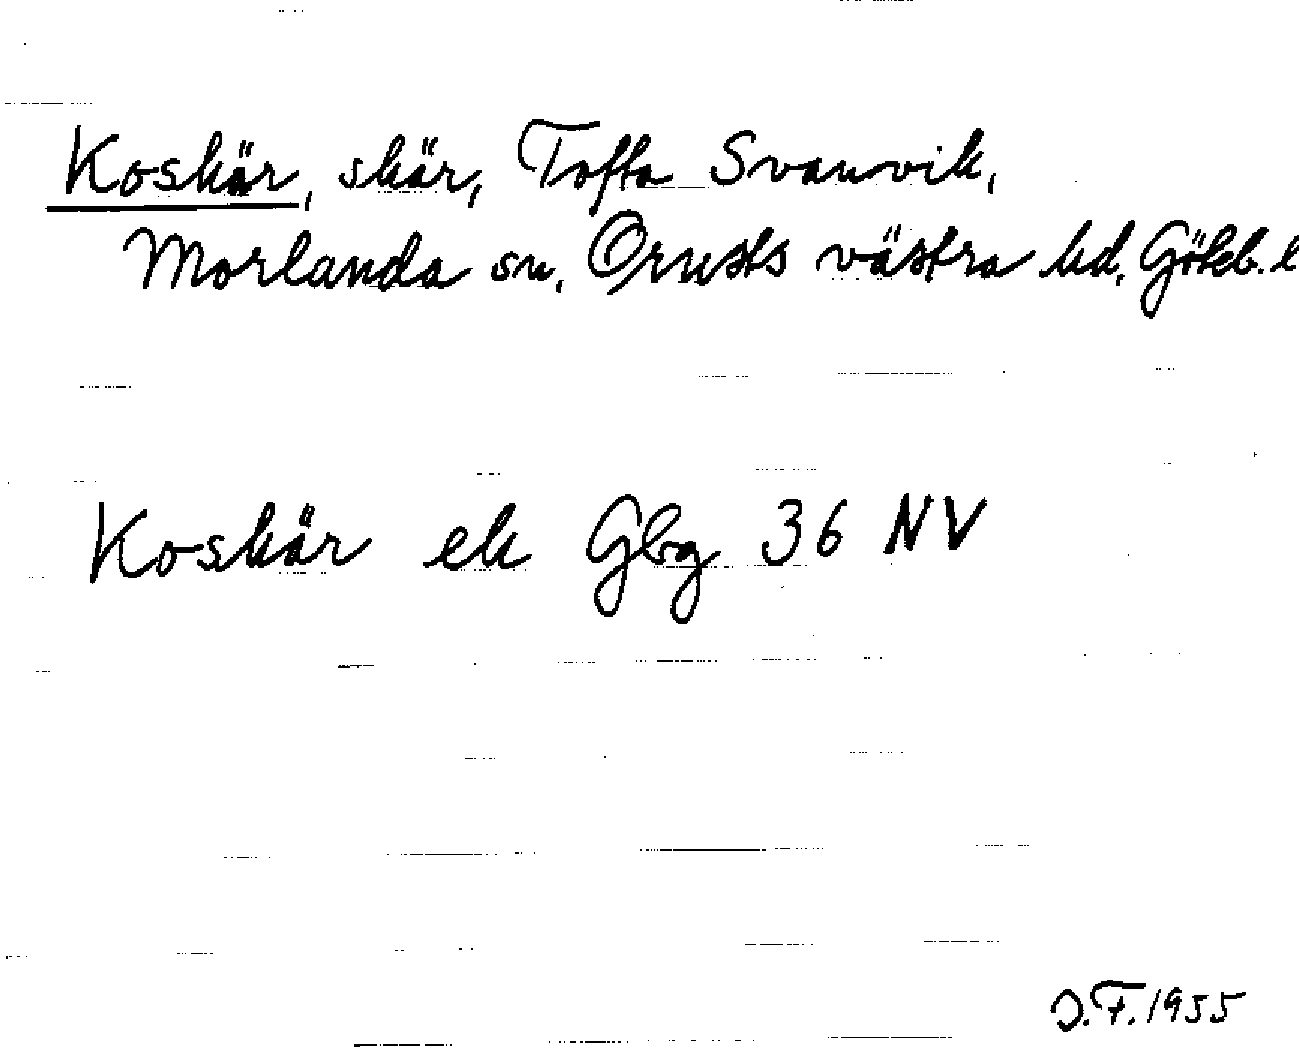 Koskär, skär, Tofta Svanvik,
Morlanda sn. Orusts västra hd. Göteb. l
Koskär ek Gbg 36 NV
J.F. 1955